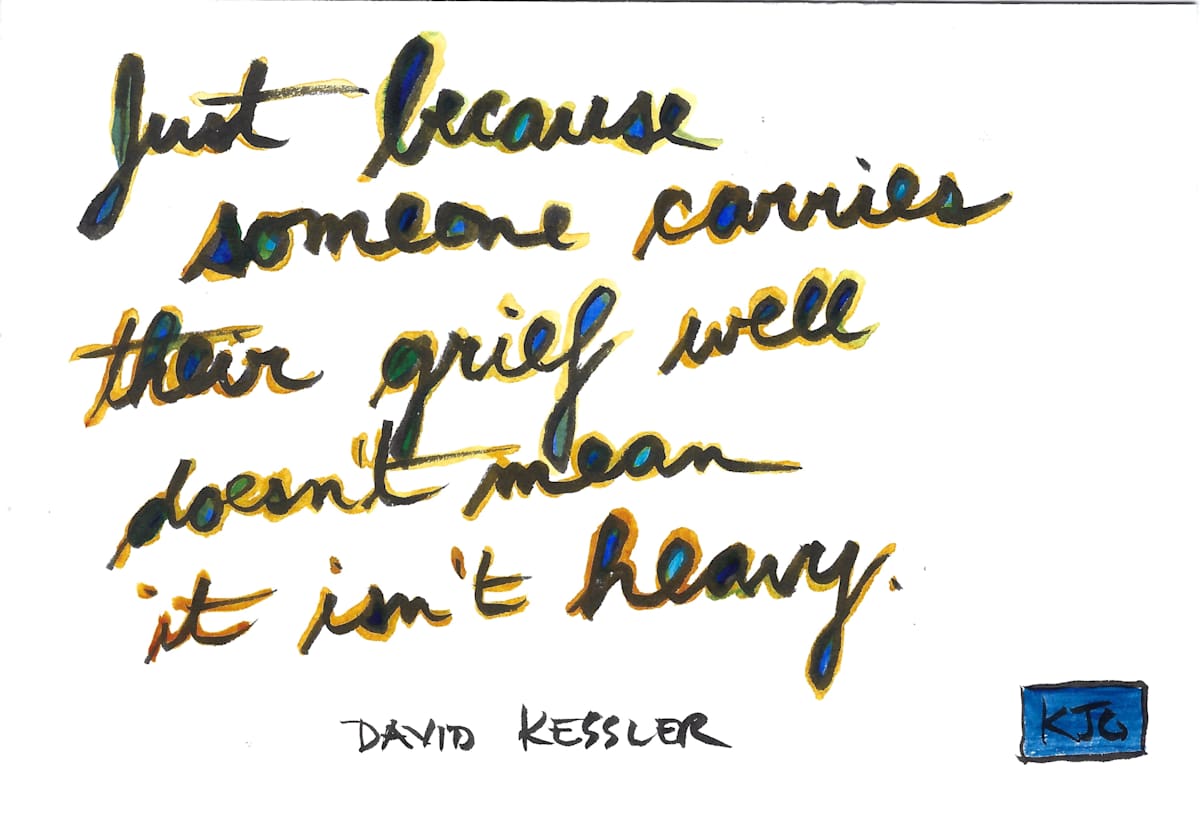 Just because
someone carries
their grief well
doesn't mean
it isn't heavy.
DAVID KESSLER
KJG